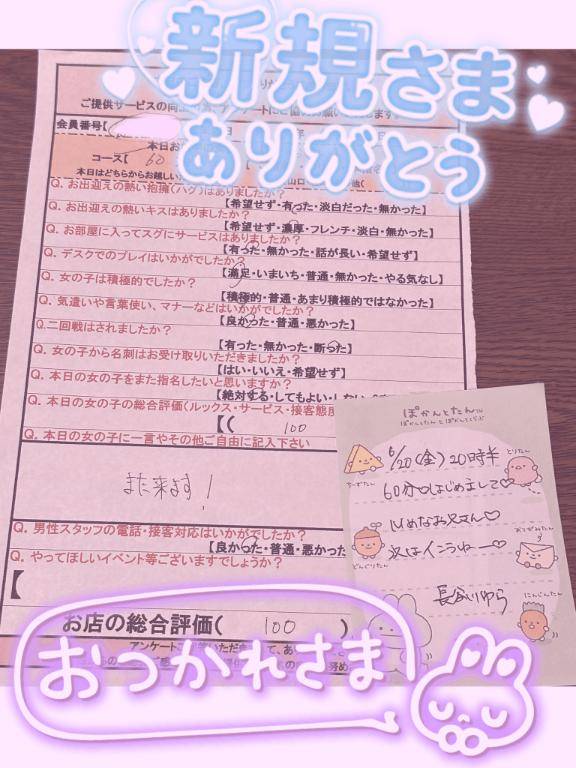 新規さま
ありがとう
ご提供サービスの向上の
会員番号【
本日お
コース【 60
本日はどちらからお越しい
Q. お出迎えの熱い抱擁(ハグ)はありましたか?
【希望せず・有った・淡白だった・無かった】
Q. お出迎えの熱いキスはありましたか?
【希望せず・濃厚・フレンチ・淡白・無かった】
Q. お部屋に入ってスグにサービスはありましたか?
【有った・無かった・話が長い・希望せず】
Q. デスクでのプレイはいかがでしたか?
【満足・いまいち・普通・無かった・やる気なし】
Q. 女の子は積極的でしたか?
【積極的・普通・あまり積極的ではなかった】
Q. 気遣いや言葉使い、マナーなどはいかがでしたか?
【良かった・普通・悪かった】
Q.二回戦はされましたか?
【有った・無かった・断った】
Q. 女の子から名刺はお受け取りいただきましたか?
【はい・いいえ・希望せず】
Q. 本日の女の子をまた指名したいと思いますか?
【絶対する・してもよい・しない
Q. 本日の女の子の総合評価(ルックス・サービス・接客態度
【( 100
Q. 本日の女の子に一言やその他ご自由に記入下さい
また来ます!
Q. 男性スタッフの電話・接客対応はいかがでしたか?
【良かった・普通・悪かっ
Q. やってほしいイベント等ございますでしょうか?
【
お店の総合評価( 100 )
アンケートご
おつかれさま
ぽかんとたん
6/20(金)20時半
ちーずたん
とりたん
60分はじめまして♡
どんぐりたん
おてがみたん
長谷川ゆら
にんじんたん